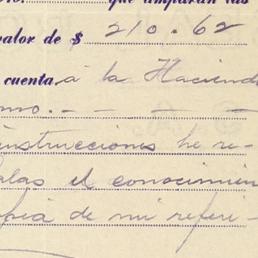 que amparan las
valor de $ 210.62
cuenta á la Hacienda
mo. - - - -
instrucciones he re-
alas el conocimien
opia de mi referi-